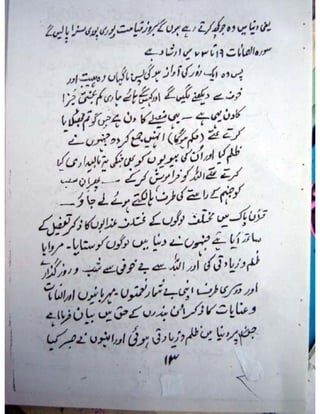 یعنی دنیا میں وہ جو کچھ کرتے رہے ہوں گے بروز قیامت پوری پوری سزا پالیں گے
سورہ الصافات ۱۹ تا ۲۳ میں ارشاد ہے
پس وہ ایک زور کی آواز ہو گی پس ناگہاں وہ ہیبت اور
خوف سے دیکھنے لگیں گے اور کہیں گے ہائے ہماری کم بختی جزا
کا دن یہی ہے یہی فیصلے کا دن ہے جس کو تم جھٹلایا
کرتے تھے (حکم ہوگا) انہیں جمع کر دو جنہوں نے
ظلم کیا اور ان کی بیویوں کو بھی جنکی یہ تابیداری کیا
کرتے تھے اللہ کو فراموش کر کے -- پھر ان سب
کو جہنم کے راستے کی طرف ہانکتے ہوئے لے جاؤ --
قرآن پاک میں مختلف لوگوں کے مختلف عذابوں کا ذکر تفصیل کے
ساتھ آیا ہے جنہوں نے دنیا میں لوگوں کو ستایا- مروایا
ظلم و زیادتی کی اور اللہ سے بے خوفی سے شب و روز گذارے
اور دوسری طرف اپنی بے شمار نعمتوں مہربانیوں اور انعامات
و عنایات کا ذکر ان بندوں کے حق میں بیان فرمایا ہے
جن پر دنیا میں ظلم و زیادتی ہوئی اور انہوں نے صبر کیا
۱۳